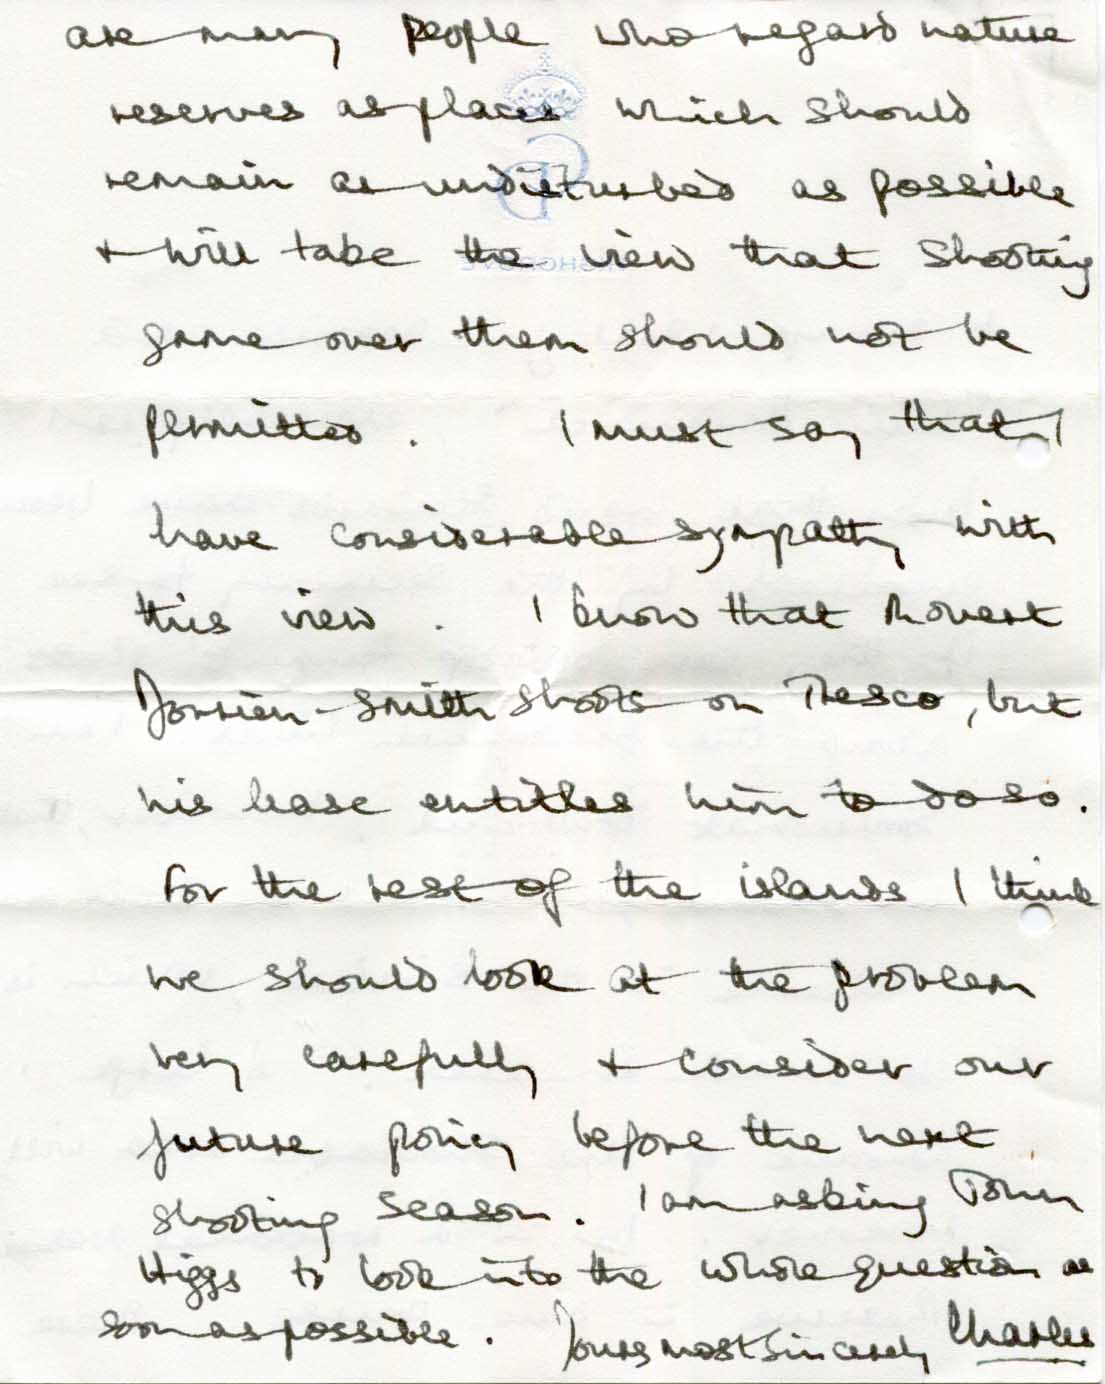 are many people who regard nature
reserves as places which should
remain as undisturbed as possible
& will take the view that shooting
game over them should not be
permitted. I must say that I
have considerable sympathy with
this view. I know that Robert
Dorrien-Smith shoots on Tresco, but
his lease entitles him to do so.
For the rest of the islands I think
we should look at the problem
very carefully & consider our
future policy before the next
shooting season. I am asking John
Higgs to look into the whole question as
soon as possible. Yours most sincerely Charles